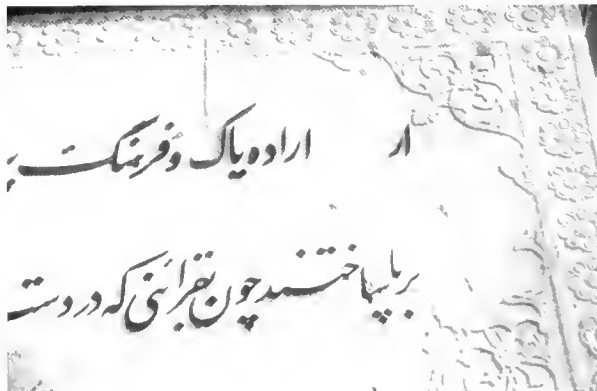 از اراده پاک و فرهنگ
برپا ساختند چون بقرائنی که در دست